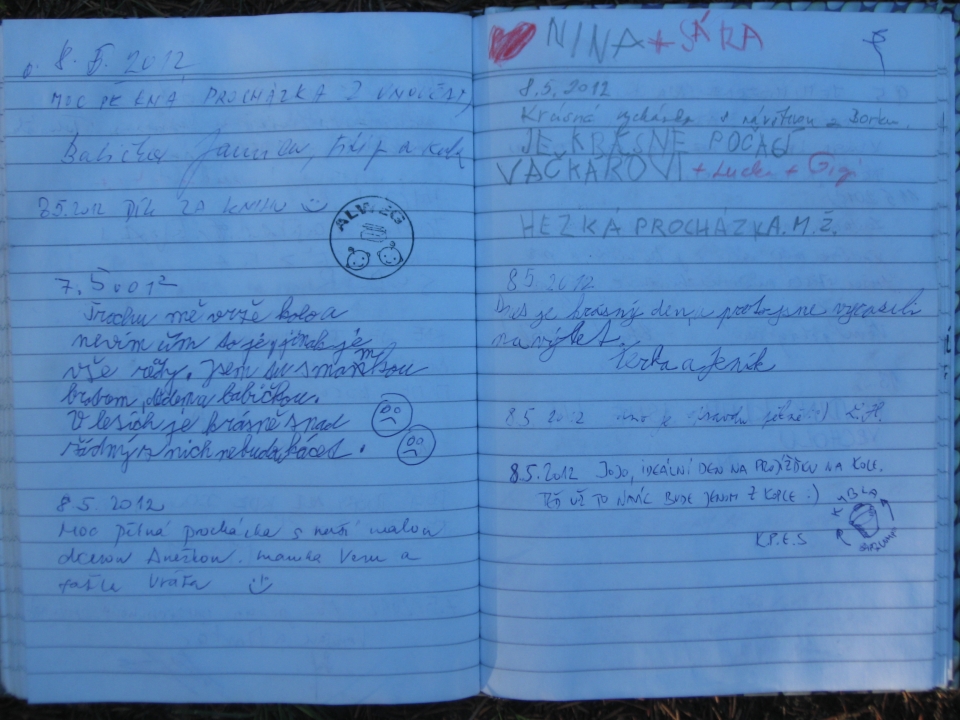 8. 5. 2012
MOC PĚKNÁ PROCHÁZKA Z VNOUČATY
Babička Jarmila, Filip a
8.5.2012 DÍK ZA KNIHU
ALWEG
7.5.2012
Trochu mě vrže kolo a
nevím čím to je, jinak je
vše . Jsem tu s mamkou
bratrem, dědem a babičkou.
V lesích je krásně snad
žádný z nich nebude kácet.
8.5.2012
Moc pěkná procházka s naší malou
dcerou Anežkou. mamka Veru a
taťka Vráťa
NINA + SÁRA
8.5.2012
Krásná vycházka s návštěvou z Borku.
JE KRÁSNÉ POČASÍ
VAČKÁŘOVI + Lucka + Gigi
HEZKÁ PROCHÁZKA. M. Ž.
8.5.2012
Dnes je krásný den, a proto jsme vyrazili
na výlet.
Terka a Jeník
8.5.2012 je :)
8.5.2012 JOJO, IDEÁLNÍ DEN NA PROJÍŽĎKU NA KOLE.
TEĎ UŽ TO NAVÍC BUDE JENOM Z KOPCE :)
K.P.E.S